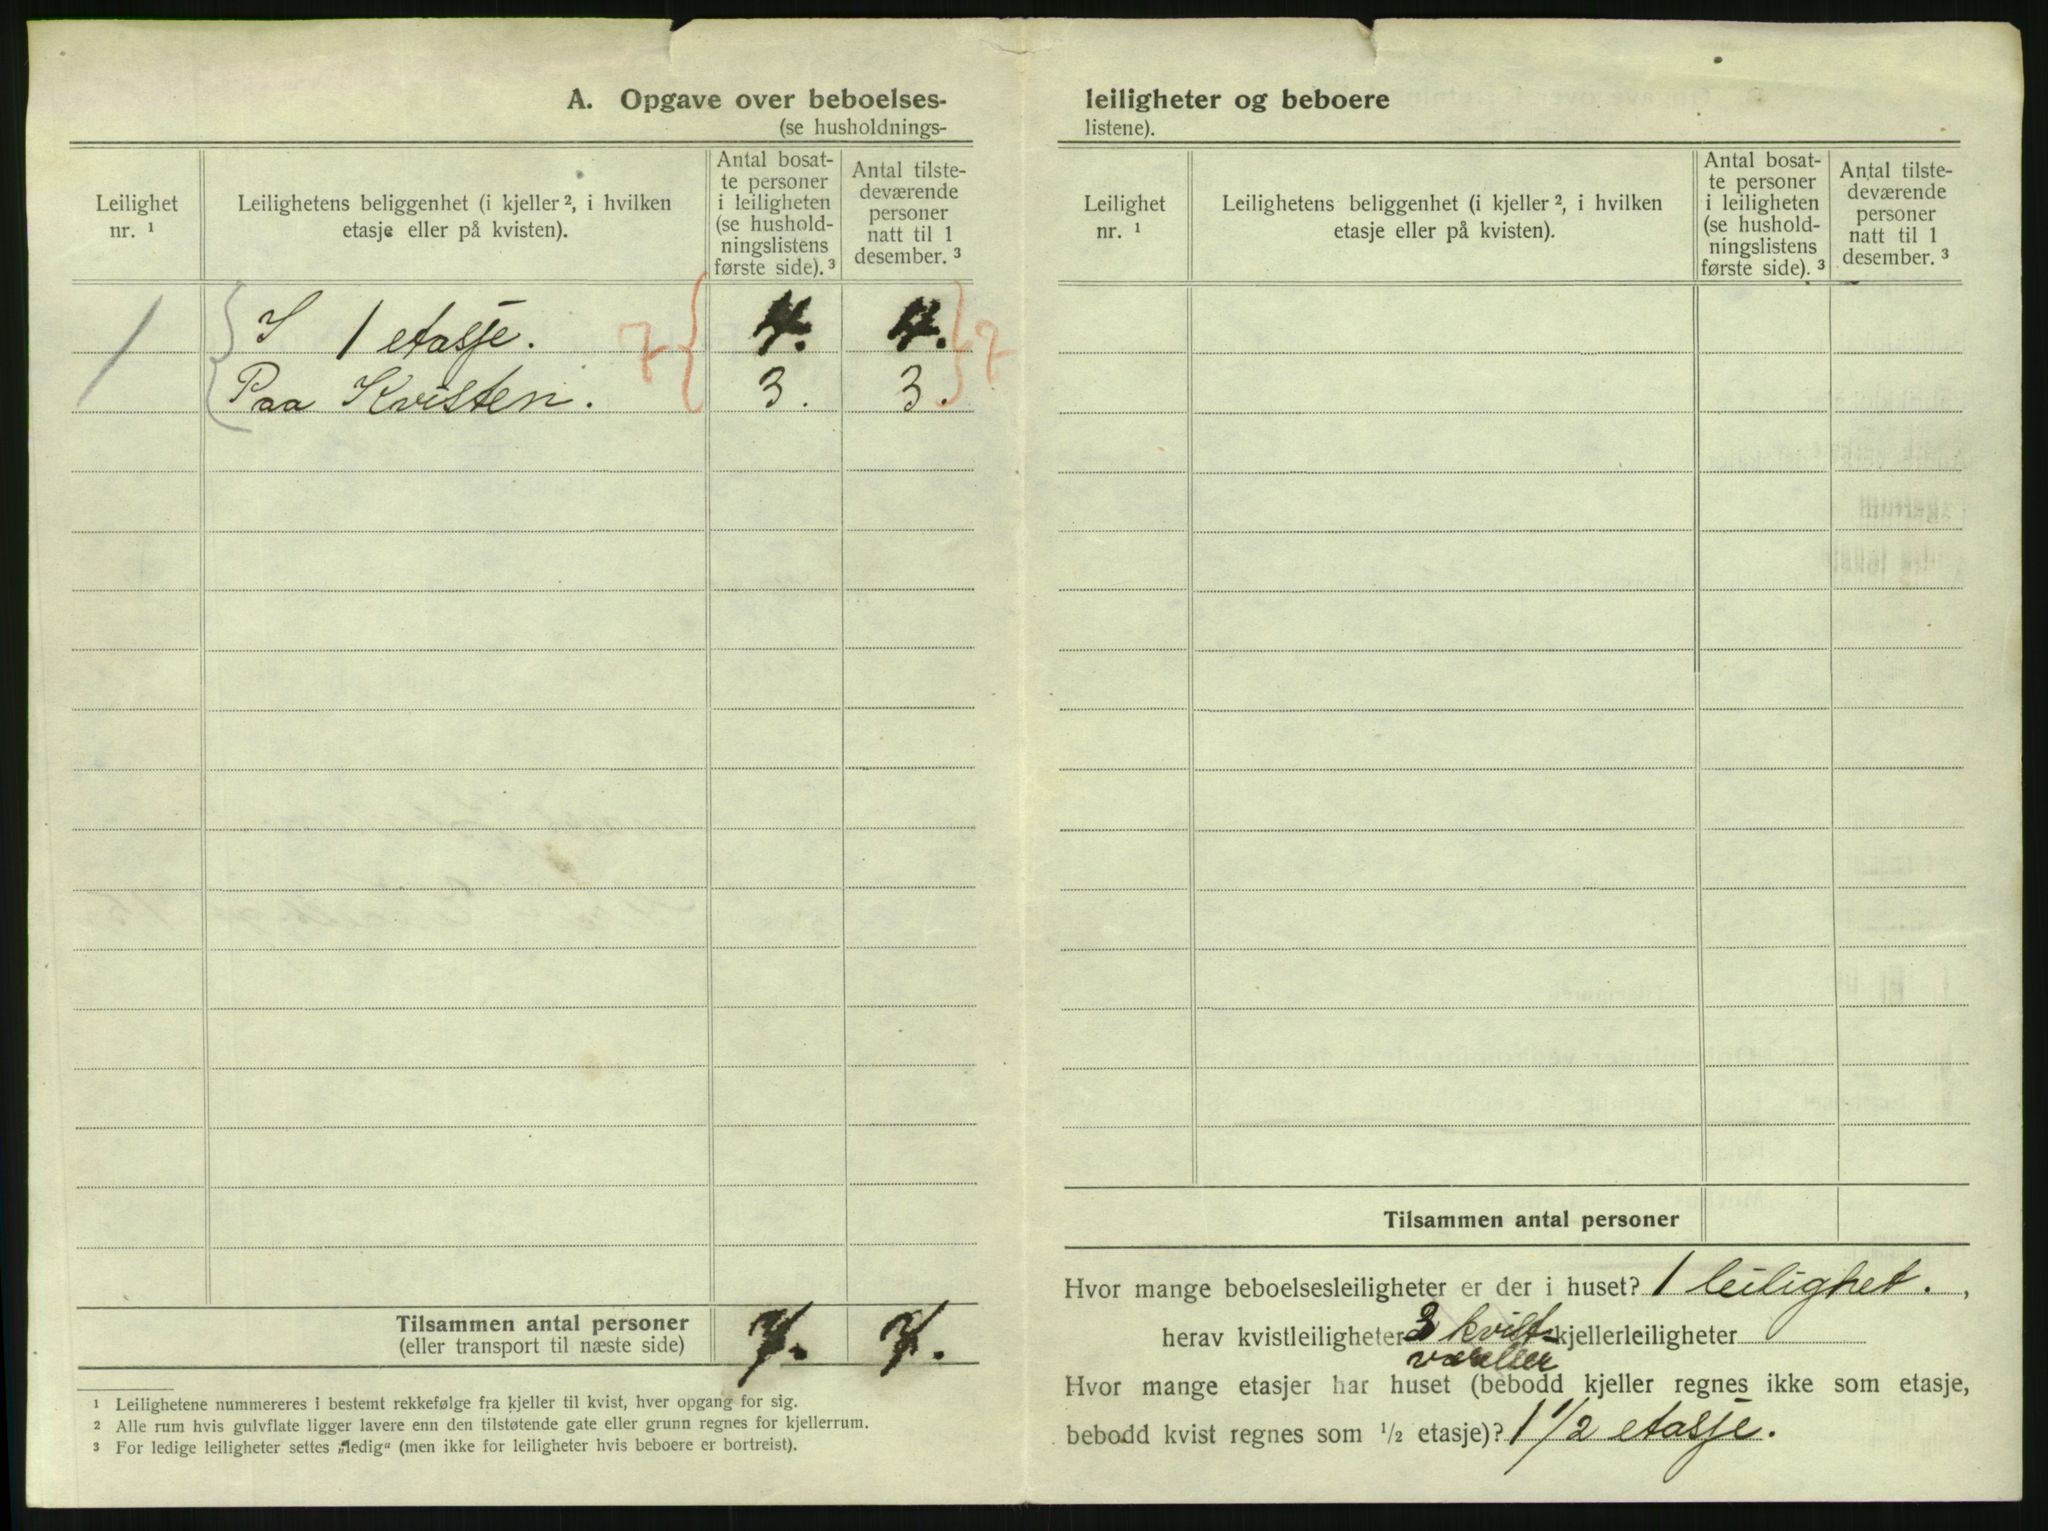 A. Opgave over beboelses-
(se husholdnings-
Leilighet
nr. ¹
Leilighetens beliggenhet (i kjeller ², i hvilken
etasje eller på kvisten).
Antal bosat-
te personer
i leiligheten
(se hushold-
ningslistens
første side). ³
Antal tilste-
deværende
personer
natt til 1
desember. ³
1 I 1 etasje. 7 4. 4. 7
Paa Kvisten. 3. 3.
Tilsammen antal personer
(eller transport til næste side)
7. 7.
¹ Leilighetene nummereres i bestemt rekkefølge fra kjeller til kvist, hver opgang for sig.
² Alle rum hvis gulvflate ligger lavere enn den tilstøtende gate eller grunn regnes for kjellerrum.
³ For ledige leiligheter settes „ledig“ (men ikke for leiligheter hvis beboere er bortreist).
leiligheter og beboere
listene).
Leilighet
nr. ¹
Leilighetens beliggenhet (i kjeller ², i hvilken
etasje eller på kvisten).
Antal bosat-
te personer
i leiligheten
(se hushold-
ningslistens
første side). ³
Antal tilste-
deværende
personer
natt til 1
desember. ³
Tilsammen antal personer
Hvor mange beboelsesleiligheter er der i huset? 1 leilighet. ,
herav kvistleiligheter 3 kvist- kjellerleiligheter
Hvor mange etasjer har huset (bebodd kjeller regnes ikke som etasje,
bebodd kvist regnes som ½ etasje)? 1 1/2 etasje.